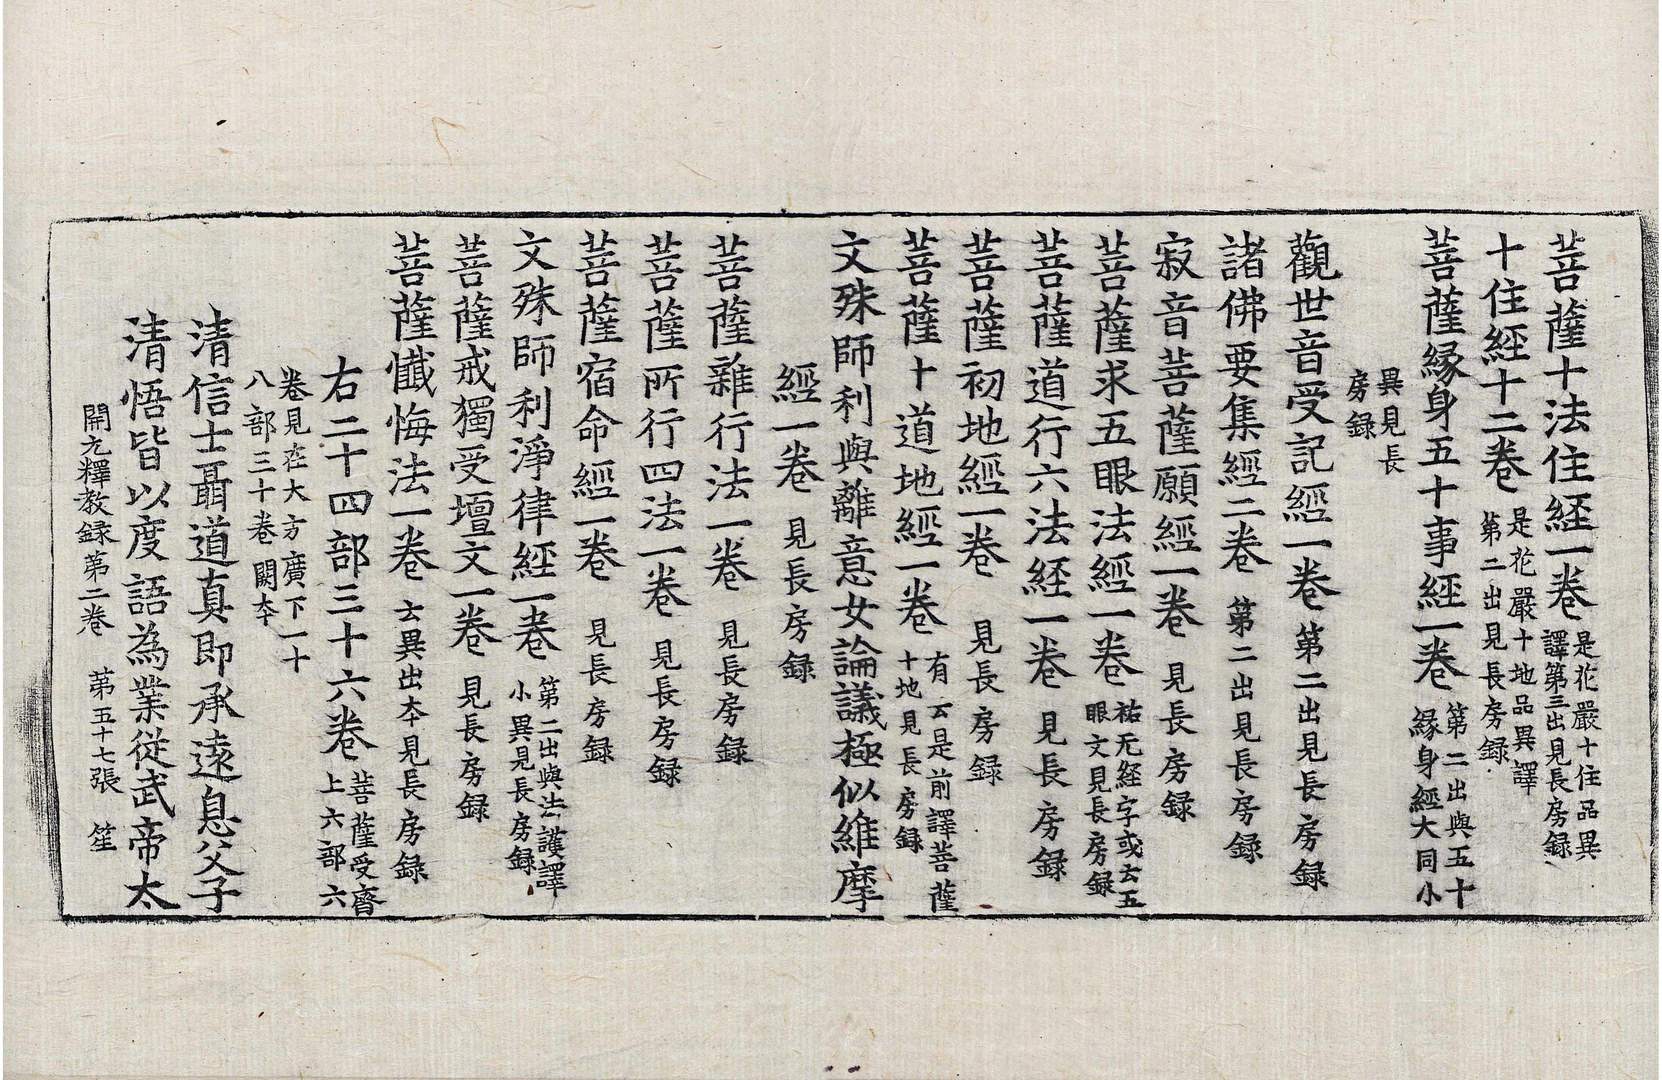 菩薩十法住経一卷 是花嚴十住品異
譯第三出見長房録
十住經十二卷 是花嚴十地品異譯
第二出見長房録
菩薩縁身五十事經一卷 第二出與五十
縁身經大同小
異見長
房録
觀世音受記經一卷 第二出見長房録
諸佛要集經二卷 第二出見長房録
寂音菩薩願經一卷 見長房録
菩薩求五眼法經一卷 祐无経字或云五
眼文見長房録
菩薩道行六法経一卷 見長房録
菩薩初地經一卷 見長房録
菩薩十道地經一卷 有云是前譯菩薩
十地見長房録
文殊師利與離意女論議極似維摩
經一卷 見長房録
菩薩雜行法一卷 見長房録
菩薩所行四法一卷 見長房録
菩薩宿命經一卷 見長房録
文殊師利淨律經一卷 第二出與法護譯
小異見長房録
菩薩戒獨受壇文一卷 見長房録
菩薩懺悔法一卷 云異出夲見長房録
右二十四部三十六卷 菩薩受齋
上六部六
卷見在大方廣下一十
八部三十卷闕夲
清信士聶道真即承遠息父子
清悟皆以度語為業從武帝太
開元釋教録第二卷 第五十七張 笙